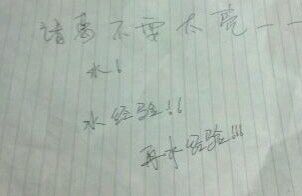 请离不要太亮一一
水!
水经验!!
再水经验!!!